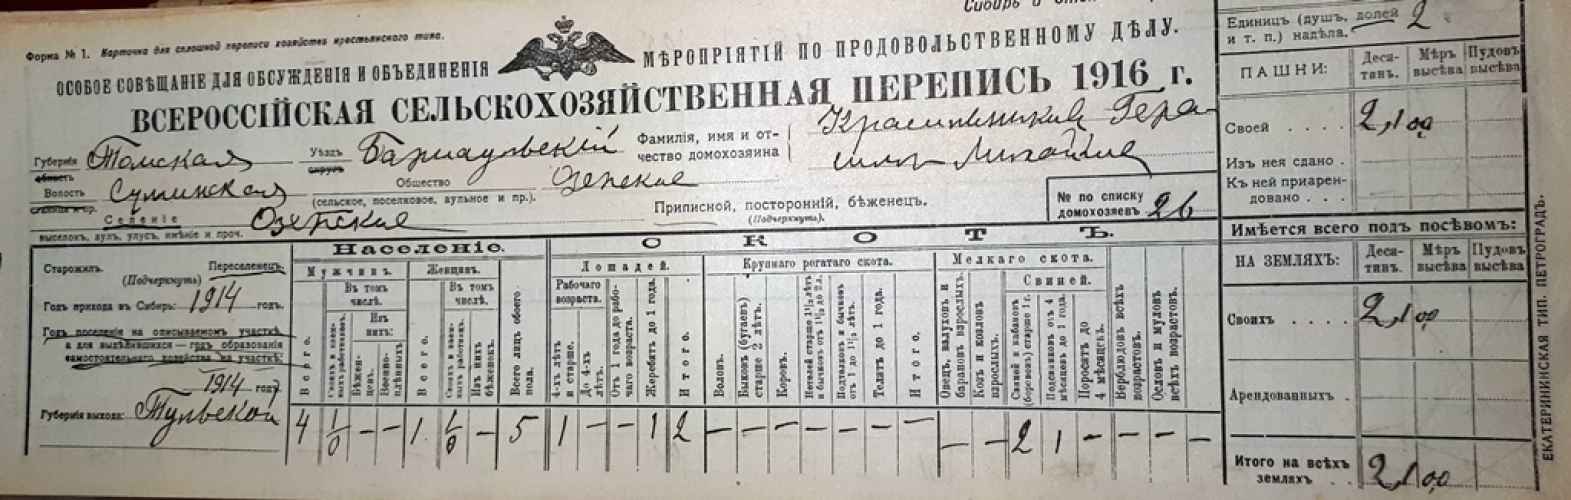 Сибирь и
Форма № 1. Карточка для сплошной переписи хозяйствъ крестьянскаго типа.
ОСОБОЕ СОВѢЩАНІЕ ДЛЯ ОБСУЖДЕНІЯ И ОБЪЕДИНЕНІЯ МѢРОПРІЯТІЙ ПО ПРОДОВОЛЬСТВЕННОМУ ДѢЛУ.
ВСЕРОССІЙСКАЯ СЕЛЬСКОХОЗЯЙСТВЕННАЯ ПЕРЕПИСЬ 1916 г.
Губернія Томская Уѣздъ Барнаульскій Фамилія, имя и от-
область округъ чество домохозяина
Волость Сузунская Общество
(сельское, поселковое, аульное и пр.).
Селеніе
выселокъ, аулъ, улусъ, имѣніе и проч.
Приписной, посторонній, бѣженецъ.
(Подчеркнуть).
№ по списку
домохозяевъ 26
Населеніе.
СКОТЪ.
Старожилъ. Переселенецъ
(Подчеркнуть)
Годъ прихода въ Сибирь: 1914 годъ.
Годъ поселенія на описываемомъ участкѣ,
а для выдѣлившихся — годъ образованія
самостоятельнаго хозяйства на участкѣ:
1914 годъ
Губернія выхода: Тульской
Мужчинъ.
Всего.
Въ томъ числѣ.
Изъ нихъ:
Бѣженцевъ.
Военноплѣнныхъ.
Женщинъ.
Всего.
Въ томъ числѣ.
Изъ нихъ бѣженокъ.
Всего лицъ обоего пола.
Лошадей.
Рабочаго возраста.
4-хъ лѣтъ и старше.
До 4-хъ лѣтъ.
Отъ 1 года до рабочаго возраста.
Жеребятъ до 1 года.
Итого.
Крупнаго рогатаго скота.
Воловъ.
Быковъ (бугаевъ) старше 2 лѣтъ.
Коровъ.
Нетелей старше 1½ лѣтъ и бычковъ отъ 1½ до 2 л.
Подтелковъ и бычковъ отъ 1 до 1½ лѣтъ.
Телятъ до 1 года.
Итого.
Мелкаго скота.
Овецъ, валуховъ и барановъ взрослыхъ.
Козъ и козловъ взрослыхъ.
Свиней.
Свиней и кабановъ (борововъ) старше 1 г.
Подсвинковъ отъ 4 мѣсяцевъ до 1 года.
Поросятъ до 4 мѣсяцевъ.
Верблюдовъ всѣхъ возрастовъ.
Ословъ и муловъ всѣхъ возрастовъ.
4 1/0 — — 1. 1/0 — 5 1 — — 1 2 — — — — — — — — — 2 1 — — —
Единицъ (душъ, долей 2
и т. п.) надѣла.
ПАШНИ: Деся-тинъ. Мѣръ высѣва Пудовъ высѣва
Своей 2,100
Изъ нея сдано
Къ ней приарен-
довано
Имѣется всего подъ посѣвомъ:
НА ЗЕМЛЯХЪ: Деся-тинъ. Мѣръ высѣва Пудовъ высѣва
Своихъ 2,100
Арендованныхъ
Итого на всѣхъ
земляхъ 2,100
ЕКАТЕРИНИНСКАЯ ТИП. ПЕТРОГРАДЪ.